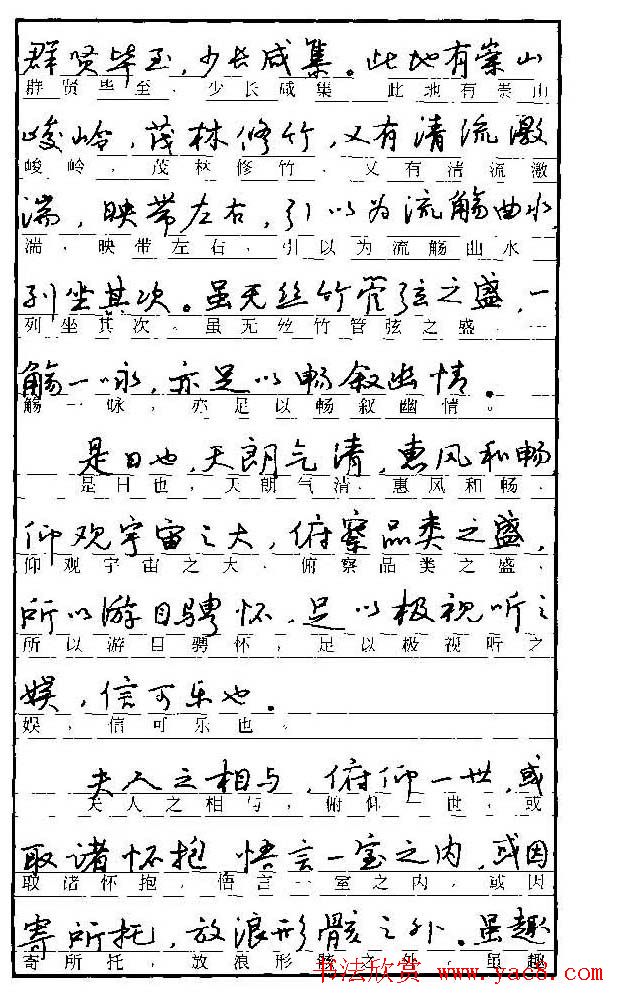 群贤毕至，少长咸集。此地有崇山
群贤毕至，少长咸集。此地有崇山
峻岭，茂林修竹，又有清流激
峻岭，茂林修竹，又有清流激
湍，映带左右，引以为流觞曲水，
湍，映带左右，引以为流觞曲水
列坐其次。虽无丝竹管弦之盛，一
列坐其次。虽无丝竹管弦之盛，一
觞一咏，亦足以畅叙幽情。
觞一咏，亦足以畅叙幽情。
是日也，天朗气清，惠风和畅
是日也，天朗气清，惠风和畅，
仰观宇宙之大，俯察品类之盛，
仰观宇宙之大，俯察品类之盛，
所以游目骋怀，足以极视听之
所以游目骋怀，足以极视听之
娱，信可乐也。
娱，信可乐也。
夫人之相与，俯仰一世，或
夫人之相与，俯仰一世，或
取诸怀抱 悟言一室之内，或因
取诸怀抱，悟言一室之内，或因
寄所托，放浪形骸之外。虽趣
寄所托，放浪形骸之外。虽趣
书法欣赏 www.yac8.com